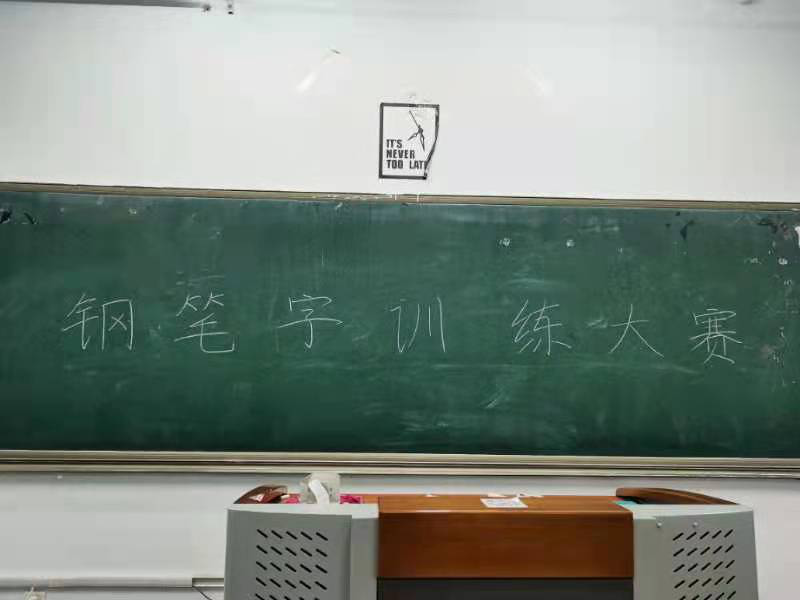 IT'S
NEVER
TOO LATE
钢笔字训练大赛